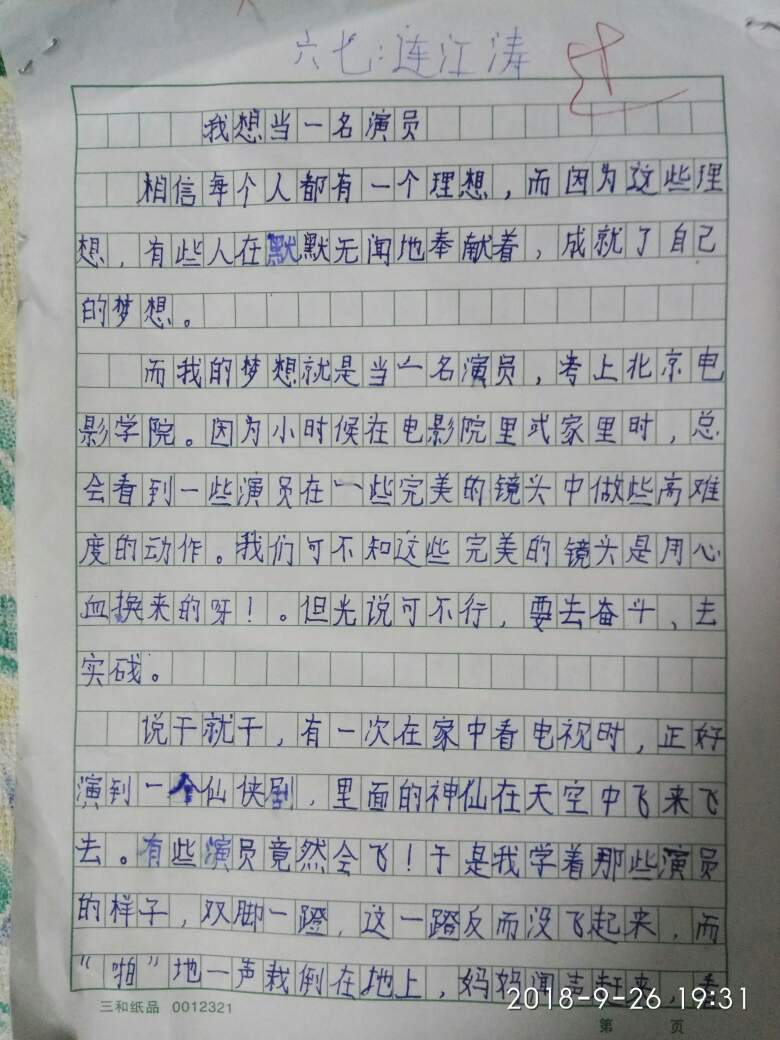 六七:连江涛
我想当一名演员
相信每个人都有一个理想，而因为这些理
想，有些人在默默无闻地奉献着，成就了自己
的梦想。
而我的梦想就是当一名演员，考上北京电
影学院。因为小时候在电影院里或家里时，总
会看到一些演员在一些完美的镜头中做些高难
度的动作。我们可不知这些完美的镜头是用心
血换来的呀！。但光说可不行，要去奋斗、去
实践。
说干就干，有一次在家中看电视时，正好
演到一个仙侠剧，里面的神仙在天空中飞来飞
去。有些演员竟然会飞！于是我学着那些演员
的样子，双脚一蹬，这一蹬反而没飞起来，而
“啪”地一声栽倒在地上，妈妈闻声赶来，看
三和纸品 0012321
第 页
2018-9-26 19:31